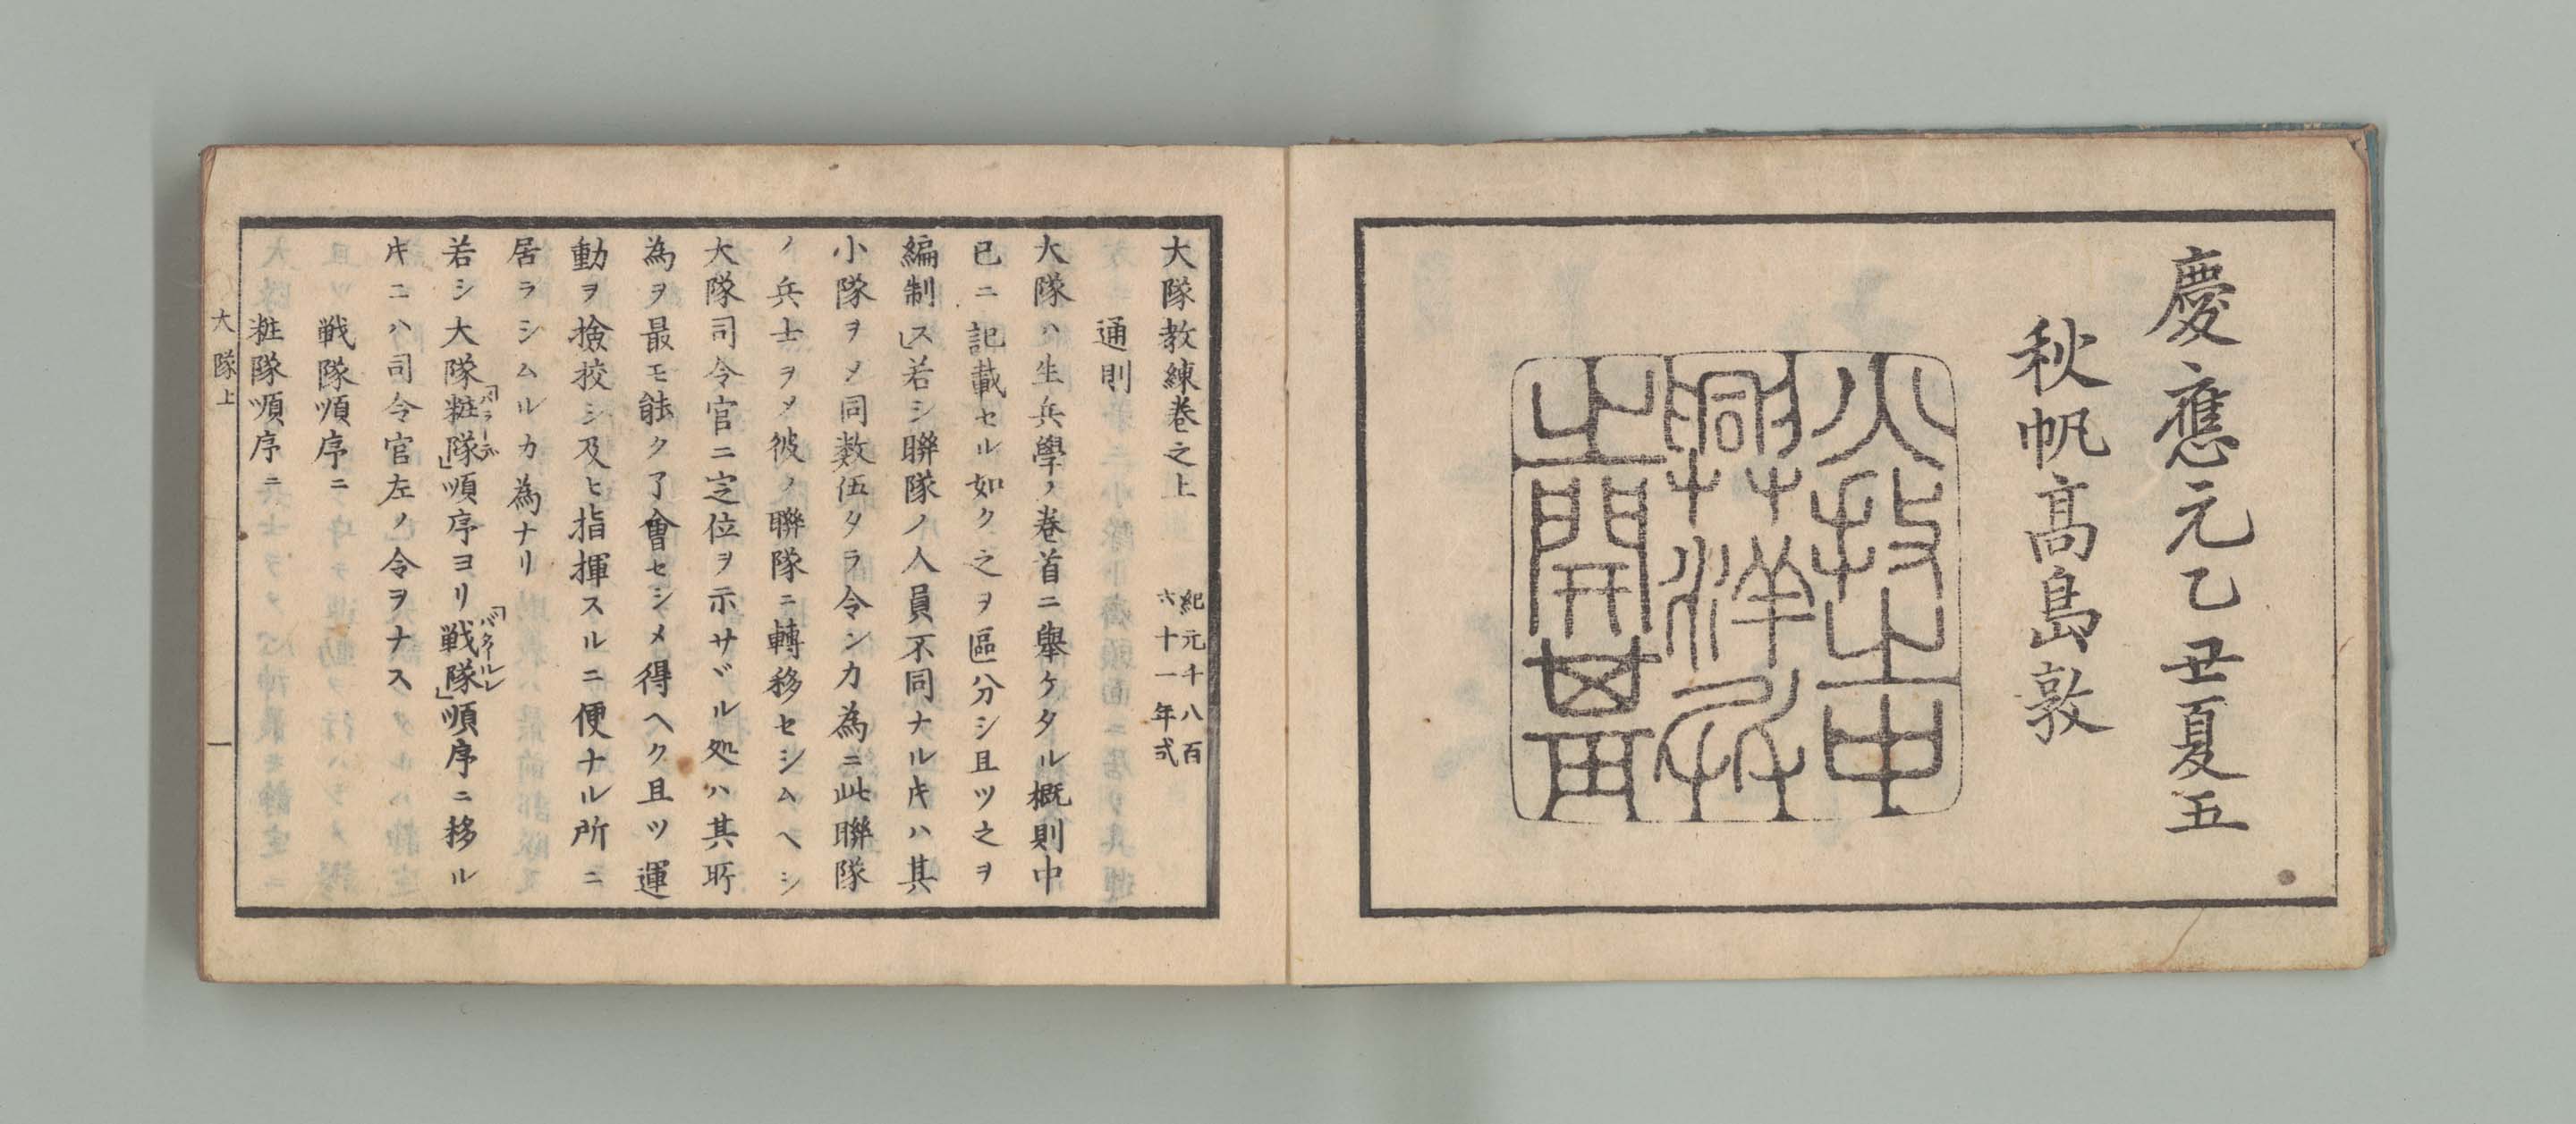 慶應元乙丑夏五
秋帆高島敦
火技之中
興洋兵
之開基
大隊教練巻之上 紀元十八百六十一年弐
通則
大隊ハ生兵學ノ巻首ニ舉ケタル概則中
已ニ記載セル如ク之ヲ區分シ且ツ之ヲ
編制ス」若シ聯隊ノ人員不同ナルキハ其
小隊ヲメ同数伍タラ令ンカ為ニ此聯隊
ノ兵士ヲメ彼ノ聯隊ニ轉移セシムヘシ
大隊司令官ニ定位ヲ示サヾル処ハ其所
為ヲ最モ能ク了會セシメ得ヘク且ツ運
動ヲ撿挍シ及ヒ指揮スルニ便ナル所ニ
居ラシムルカ為ナリ
若シ大隊「粧隊」パラーデ順序ヨリ「戦隊」バタールレ順序ニ移ル
キニハ司令官左ノ令ヲナス
戦隊順序ニ
粧隊順序ニ
大隊上 一